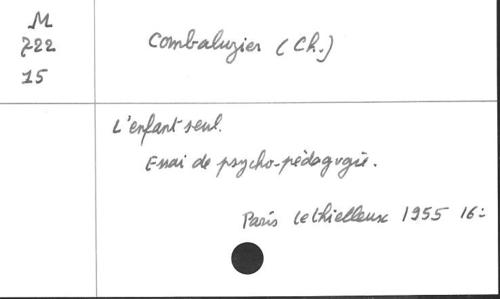 M
722
15
Combaluzier (Ch.)
L'enfant seul.
Essai de psycho-pédagogie.
Paris Lethielleux 1955 16=